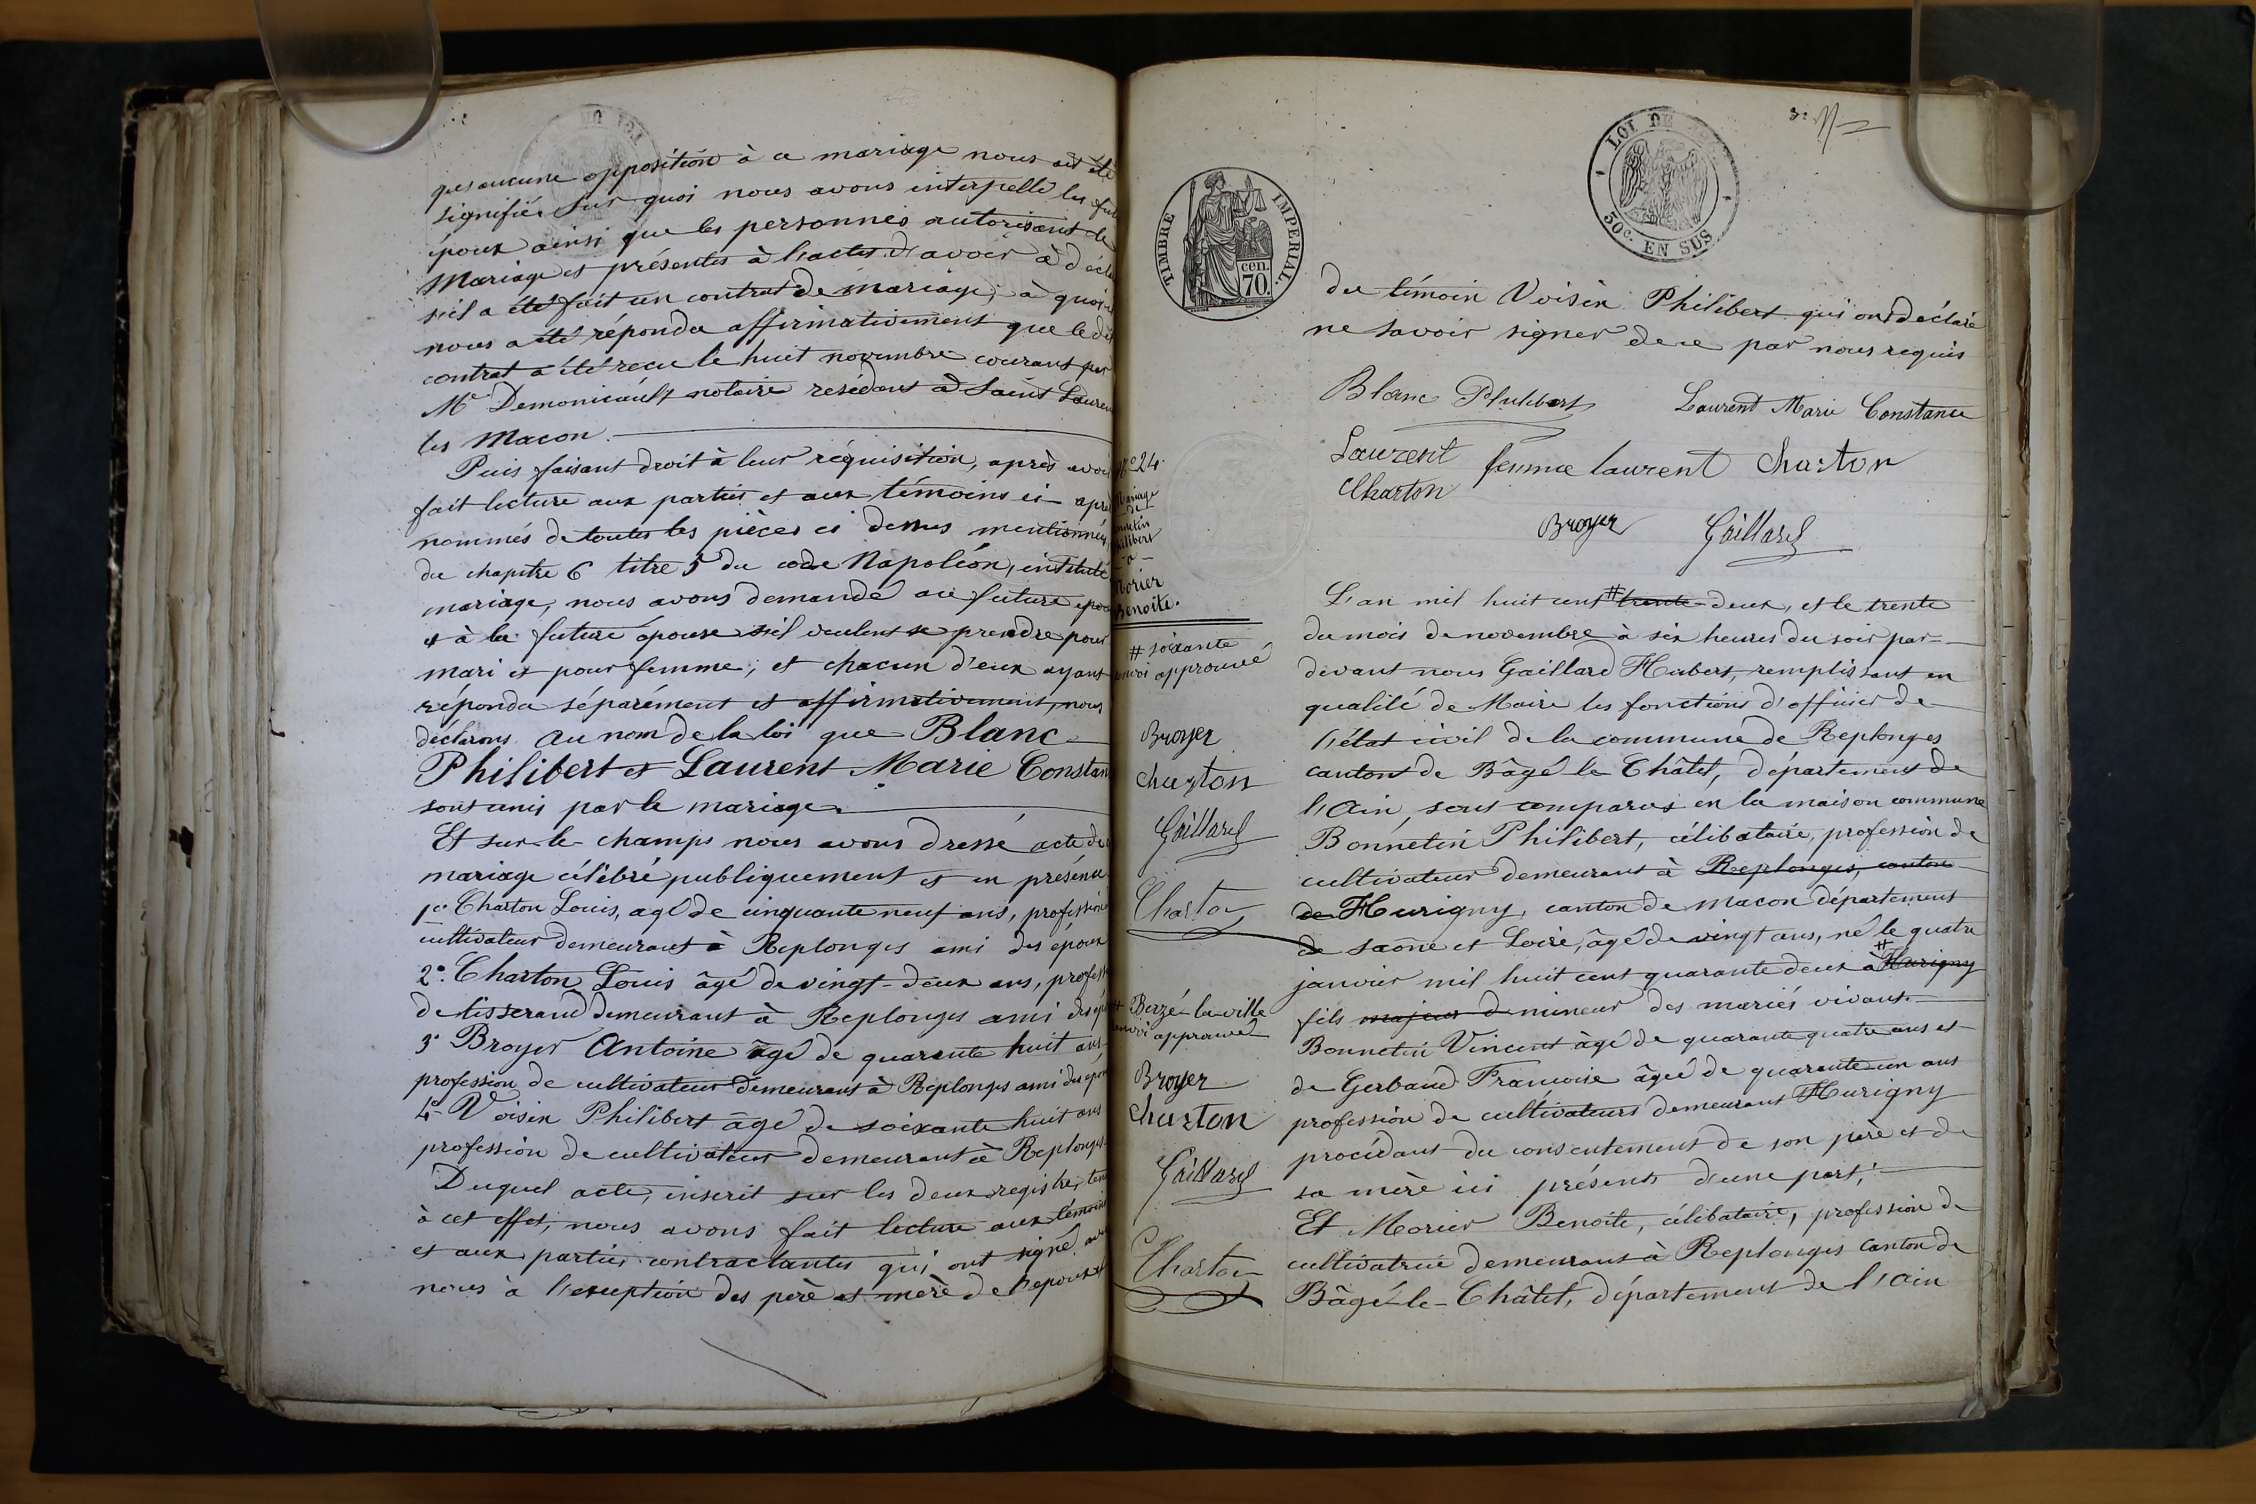 que aucune opposition à ce mariage nous ait été
signifiée sur quoi nous avons interpellé les fut
époux ainsi que les personnes autorisant le
mariage et présentes à l'acte d'avoir à décla
s'il a été fait un contrat de mariage; à quoi
nous a été répondu affirmativement que le dit
contrat a été reçu le huit novembre courant par
Me Demoniciault notaire résidant à Saint Lauren
les Macon.
Puis faisant droit à leur réquisition, après avoir
fait lecture aux parties et aux témoins ci-après
nommés de toutes les pièces ci dessus mentionnées,
du chapitre 6 titre 5 du code Napoléon, intitulé
mariage, nous avons demandé au futur epou
et à la future épouse s'il veulent se prendre pour
mari et pour femme; et chacun d'eux ayant
répondu séparément et affirmativement, nous
déclarons au nom de la loi que Blanc
Philibert et Laurent Marie Constan
sont unis par le mariage.
Et sur-le-champs nous avons dressé acte de
mariage célébré publiquement et en présence
1º Charton Louis, agé de cinquante neuf ans, profession
cultivateur demeurant à Replonges ami des époux
2º Charton Louis âgé de vingt-deux ans, profess
de tisserand demeurant à Replonges ami des ép
3º Broyer Antoine âgé de quarante huit ans
profession de cultivateur demeurant à Replonges ami des épou
4º Voisin Philibert âgé de soixante huit ans
profession de cultivateur demeurant à Replonges
Duquel acte, inscrit sur les deux registres tenu
à cet effet, nous avons fait lecture aux témoins
et aux parties contractantes qui ont signé avec
nous à l'exception des père et mère de l'epoux et
3e
LOI DE
50c. EN SUS
TIMBRE IMPERIAL
cen.
70.
du témoin Voisin Philibert qui ont déclaré
ne savoir signer de ce par nous requis
Blanc Philibert Laurent Marie Constance
Laurent femme laurent Charton
Charton
Broyer Gaillard
Nº 24.
Mariage
de
nnetin
ilibert
à
Morier
Benoite.
# soixante
envoi approuvé
Broyer
charton
Gaillard
Charton
# Berzé-la-ville
envoi approuvé
Broyer
charton
Gaillard
Charton
L'an mil huit cent # trente-deux, et le trente
du mois de novembre à six heures du soir par-
devant nous Gaillard Hubert, remplissant en
qualité de Maire les fonctions d'officier de
l'état civil de la commune de Replonges
canton de Bâgé le Châtel, département de
l'Ain, sont comparus en la maison commune
Bonnetin Philibert, célibataire, profession de
cultivateur demeurant à Replonges, canton
de Hurigny, canton de Macon département
de Saône et Loire, âgé de vingt ans, né le quatre
janvier mil huit cent quarante deux à # Hurigny
fils majeur d mineur des mariés vivants
Bonnetin Vincent âgé de quarante quatre ans et
de Gerbaud Francoise âgée de quarante-un ans
profession de cultivateurs demeurant Hurigny
procédant du consentement de son père et de
sa mère ici présents d'une part,
Et Morier Benoite, célibataire, profession de
cultivatrice demeurant à Replonges canton de
Bâgé-le-Châtel, département de l'Ain